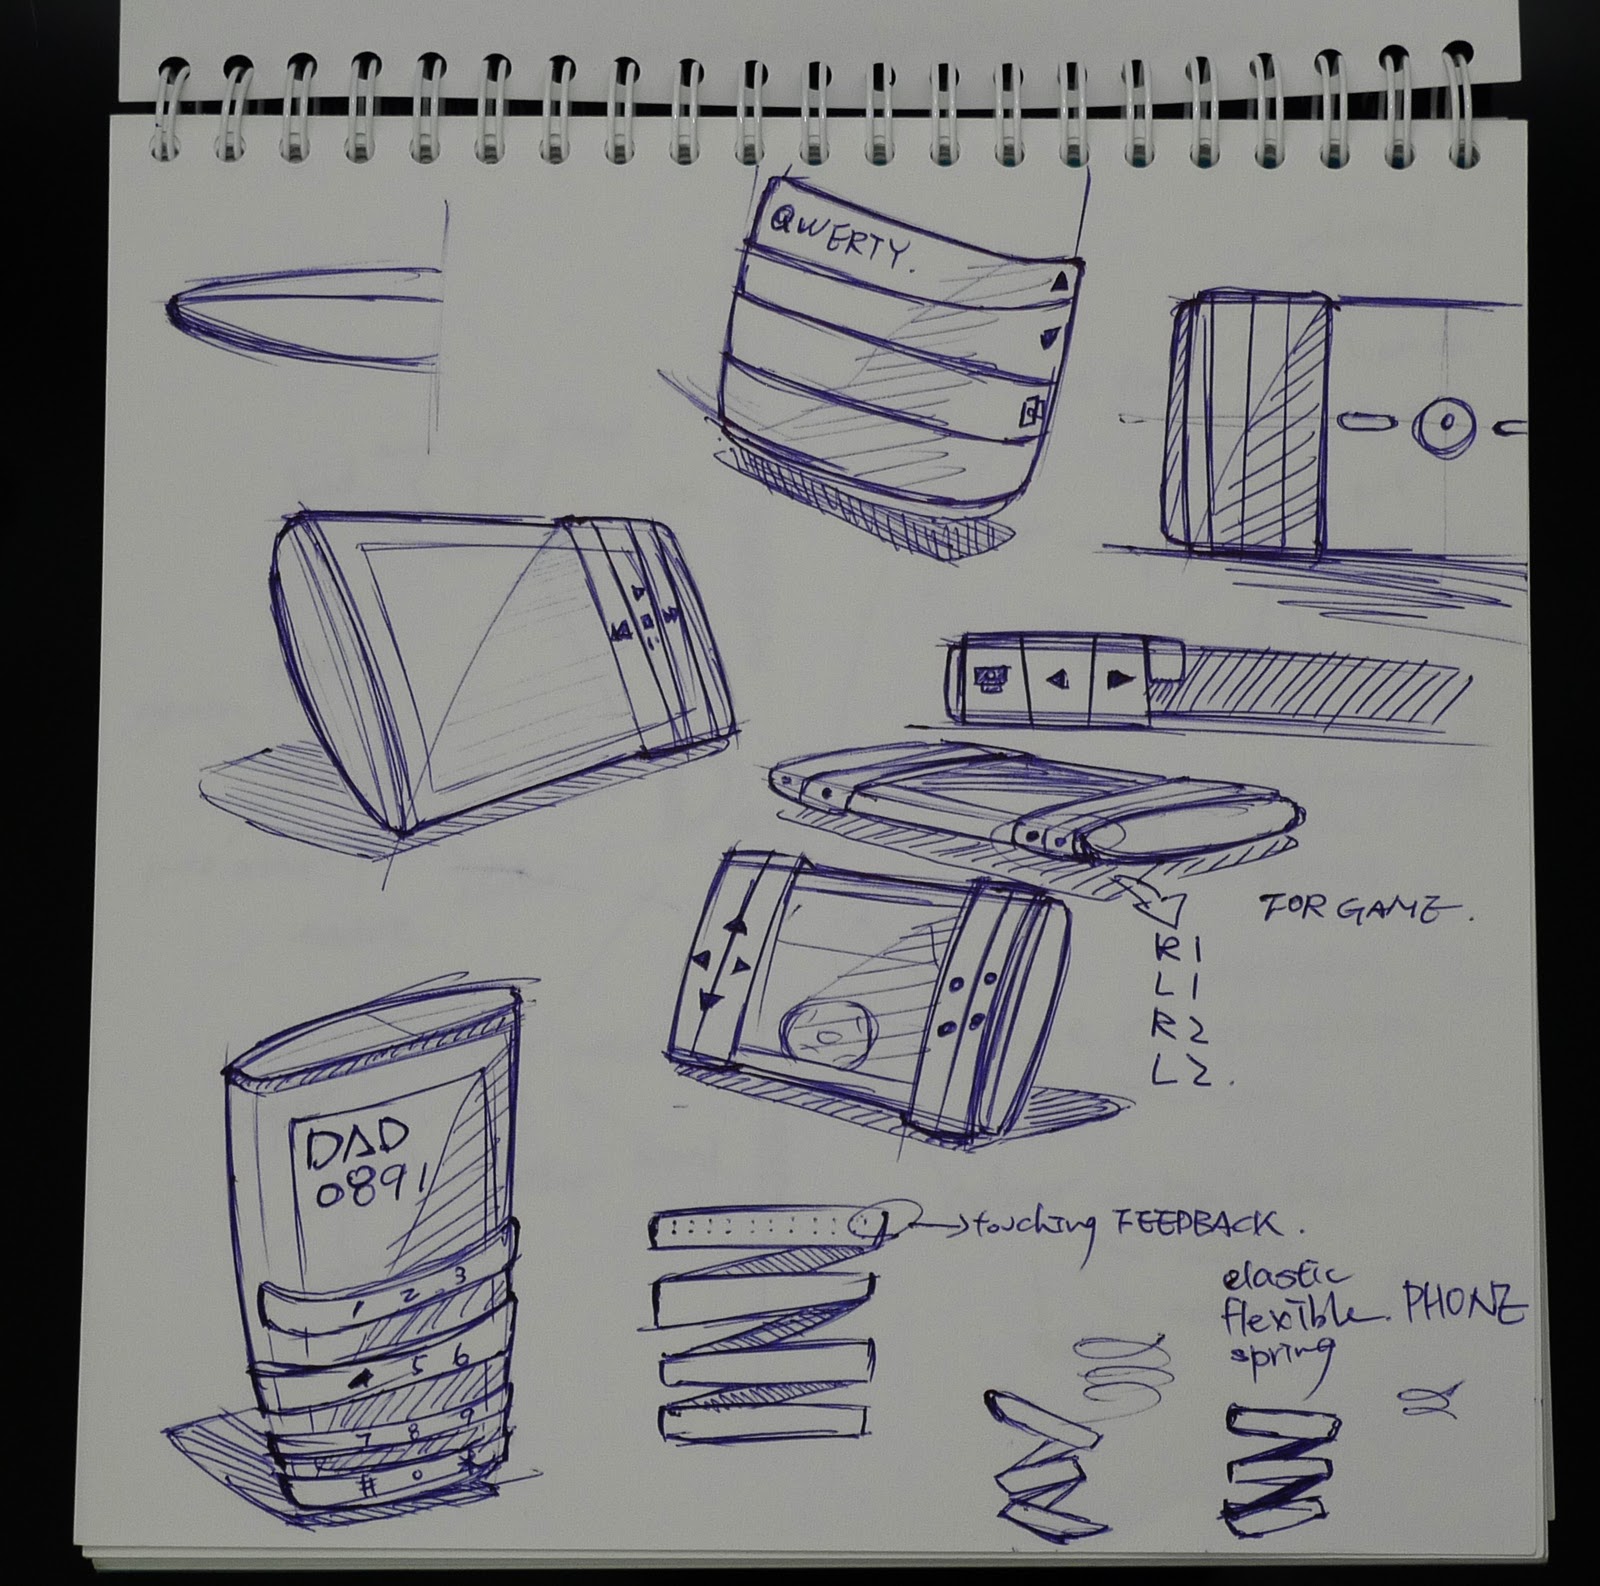 QWERTY.
FOR GAME.
R1
L1
R2
L2.
DAD
0891
1 2 3
4 5 6
7 8 9
# 0 *
touching FEEDBACK.
elastic
flexible. PHONE
spring